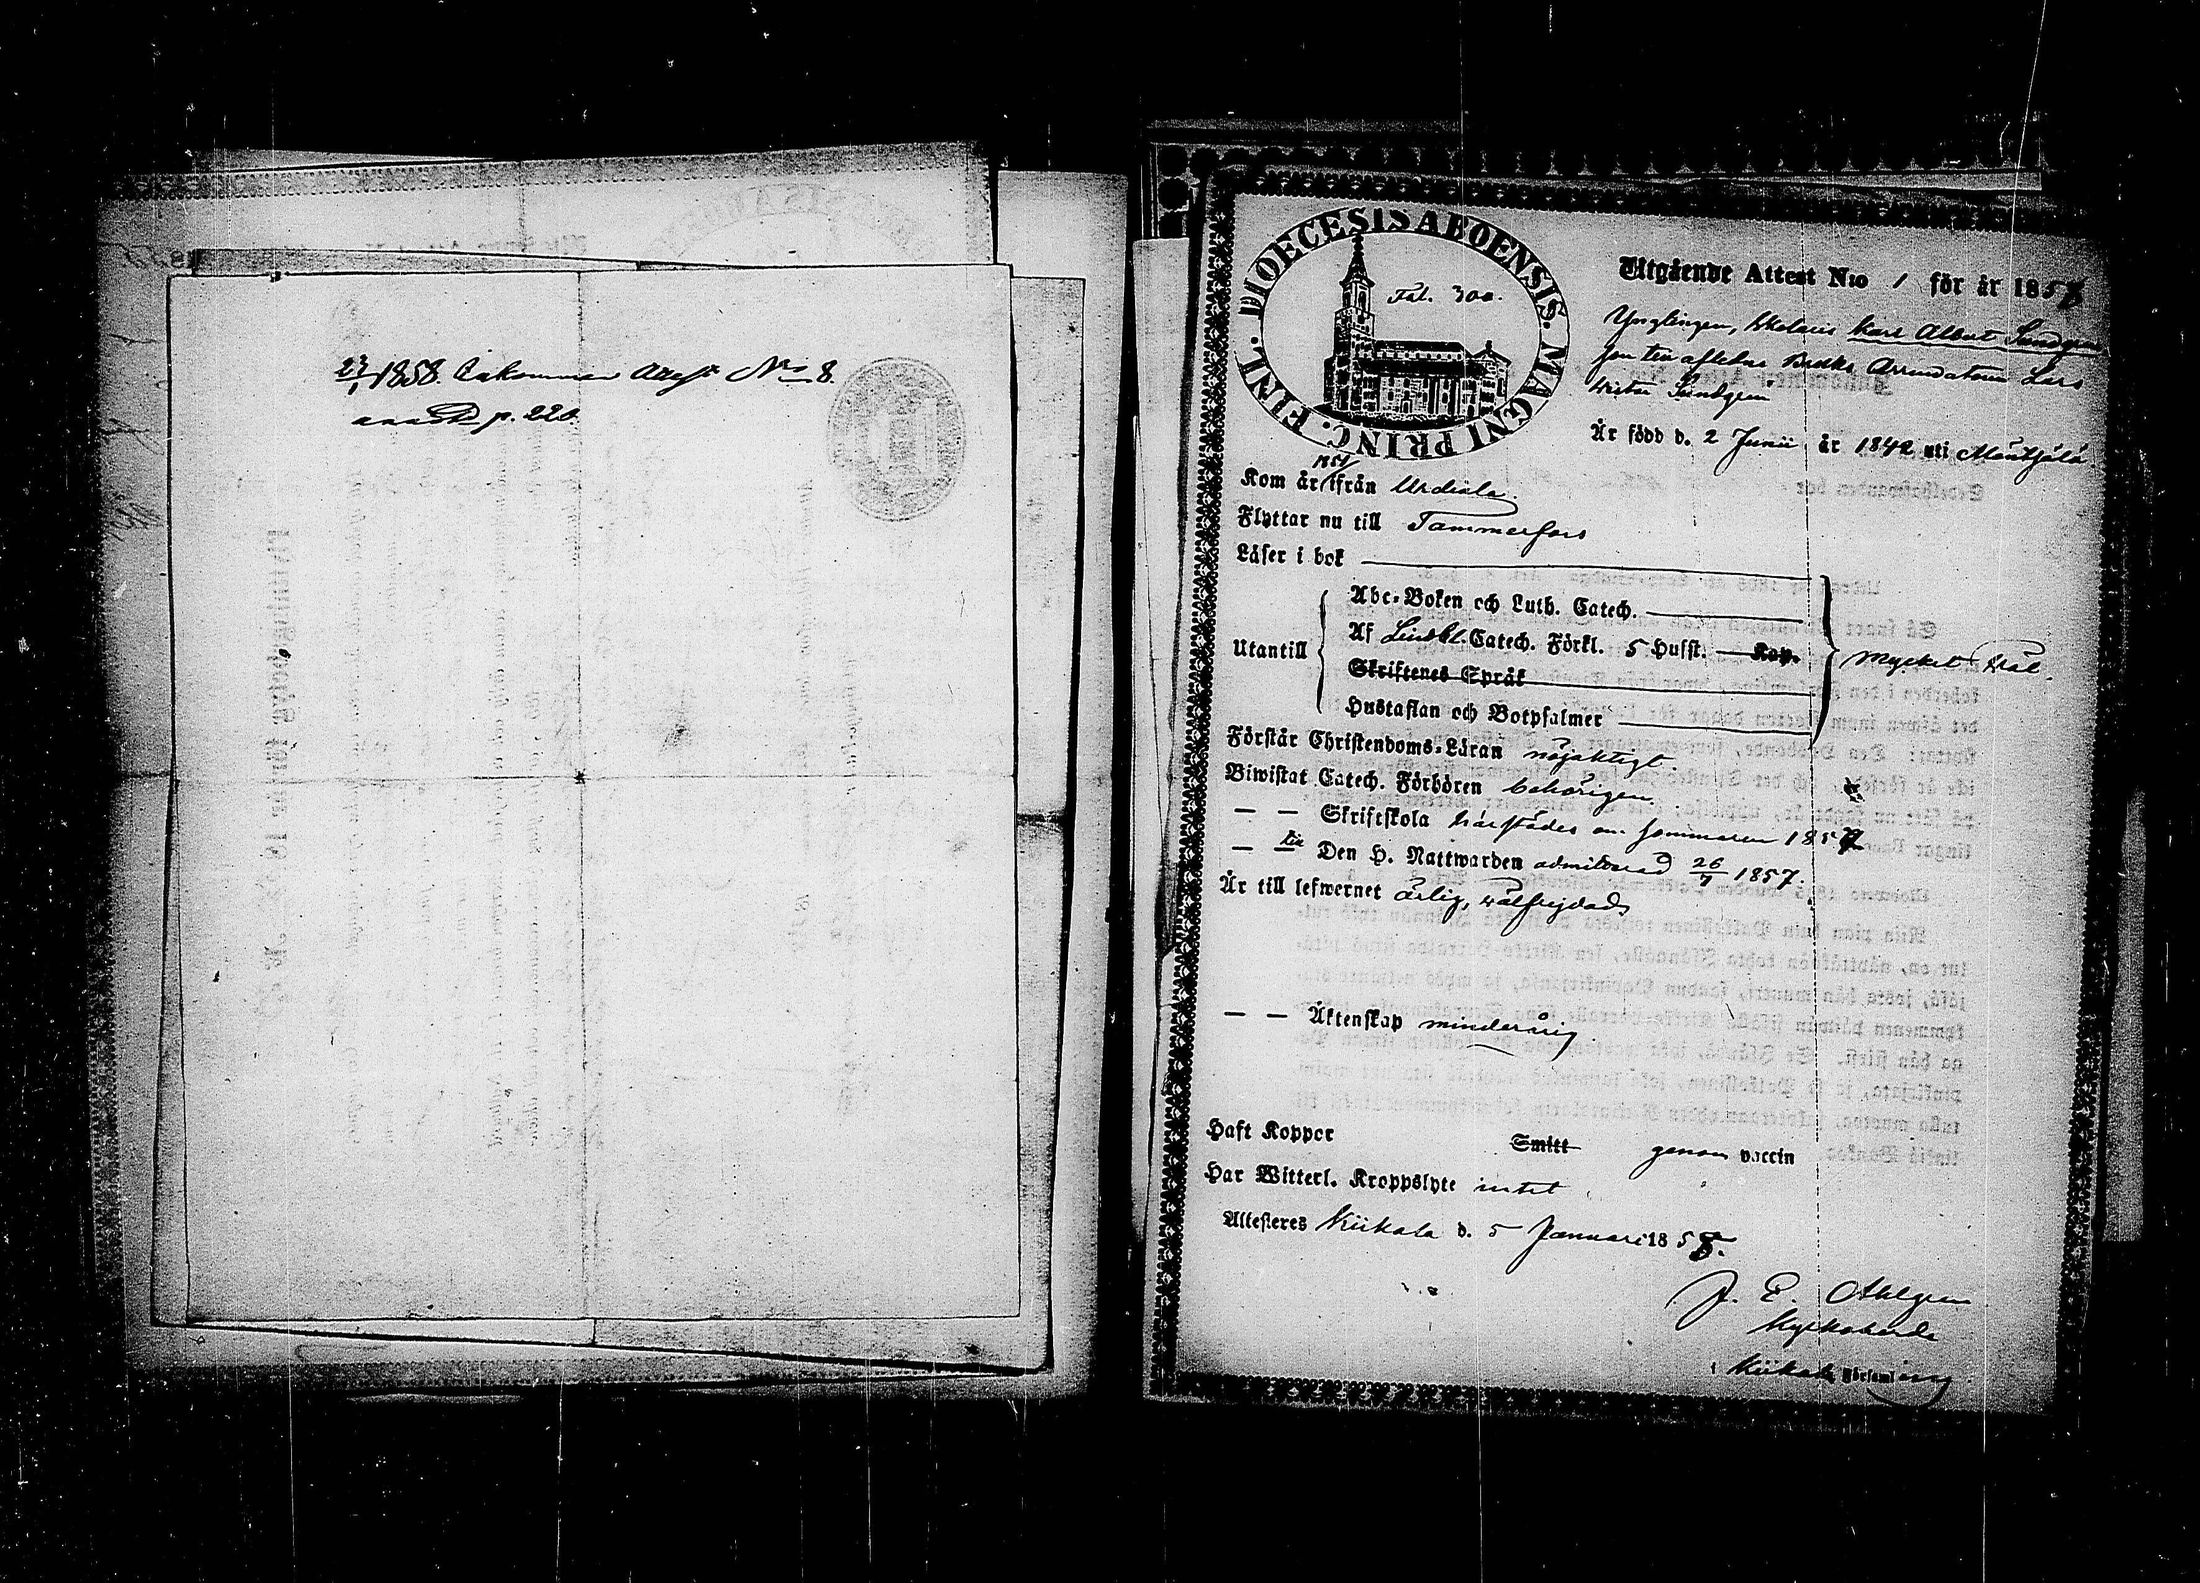 23/1 1858. Inkommen Attest No 8.
p. 226.
DIOECESIS ABOENSIS. MAGNI PRINC. FINL.
Fol. 300.
Utgående Attest N:o 1 för år 1858
Ynglingen, Karl Albert Sundgren
son till aflidne Bruks Arrendatorn Lars
Sundgren
Är född d. 2 Junii år 1842 uti
Kom år 1851 ifrån Urdiala.
Flyttar nu till Tammerfors
Läser i bok
Utantill
Abc-Boken och Luth. Catech.
Af Lindbl. Catech. Förkl. 5 Hufst. Kap.
Skriftenes Språk
Hustaflan och Botpsalmer
mycket väl.
Förstår Christendoms-Läran nöjaktigt.
Biwistat Catech. Förhören behörigen.
— — Skriftskola härstädes om sommaren 1857
— till Den H. Nattwarden admitterad 26/7 1857.
Är till lefwernet ärlig, wälfrejdad
— — Äktenskap minderårig.
Haft Koppor Smitt genom vaccin
Har Witterl. Kroppslyte intet
Attesteres Kiikala d. 5 Januari 1858.
J. E. Ahlgren
Kyrkoherde
i Kiikala Församling